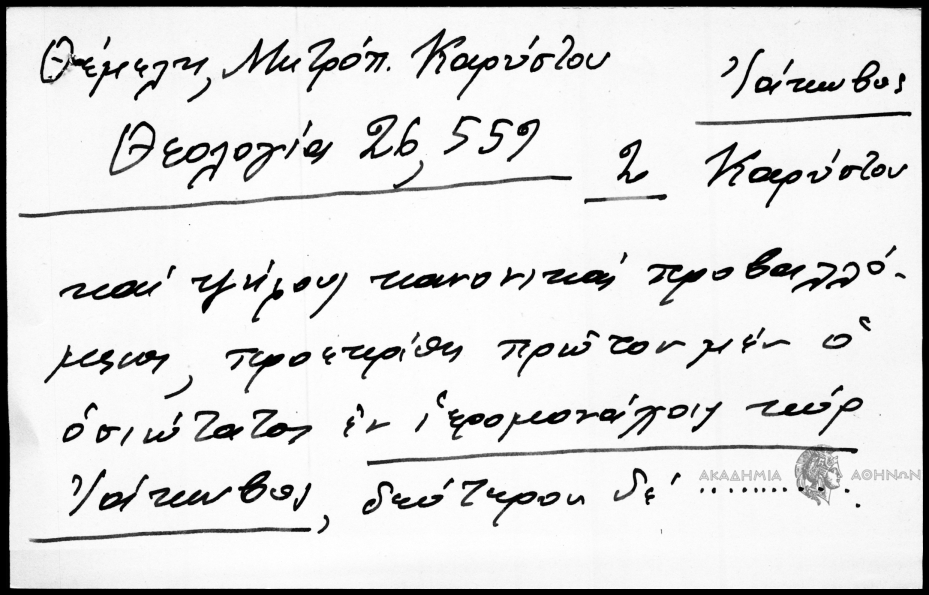 Θέμελη, Μητρόπ. Καρύστου
Ἰάκωβος
Θεολογία 26, 559
2
Καρύστου
καί ψήφους κανονικάς προβαλλό-
μενοι, προεκρίθη πρῶτον μέν ὁ
ὁσιώτατος ἐν ἱερομονάχοις κύρ
Ἰάκωβος, δεύτερος δέ ...........
ΑΚΑΔΗΜΙΑ ΑΘΗΝΩΝ